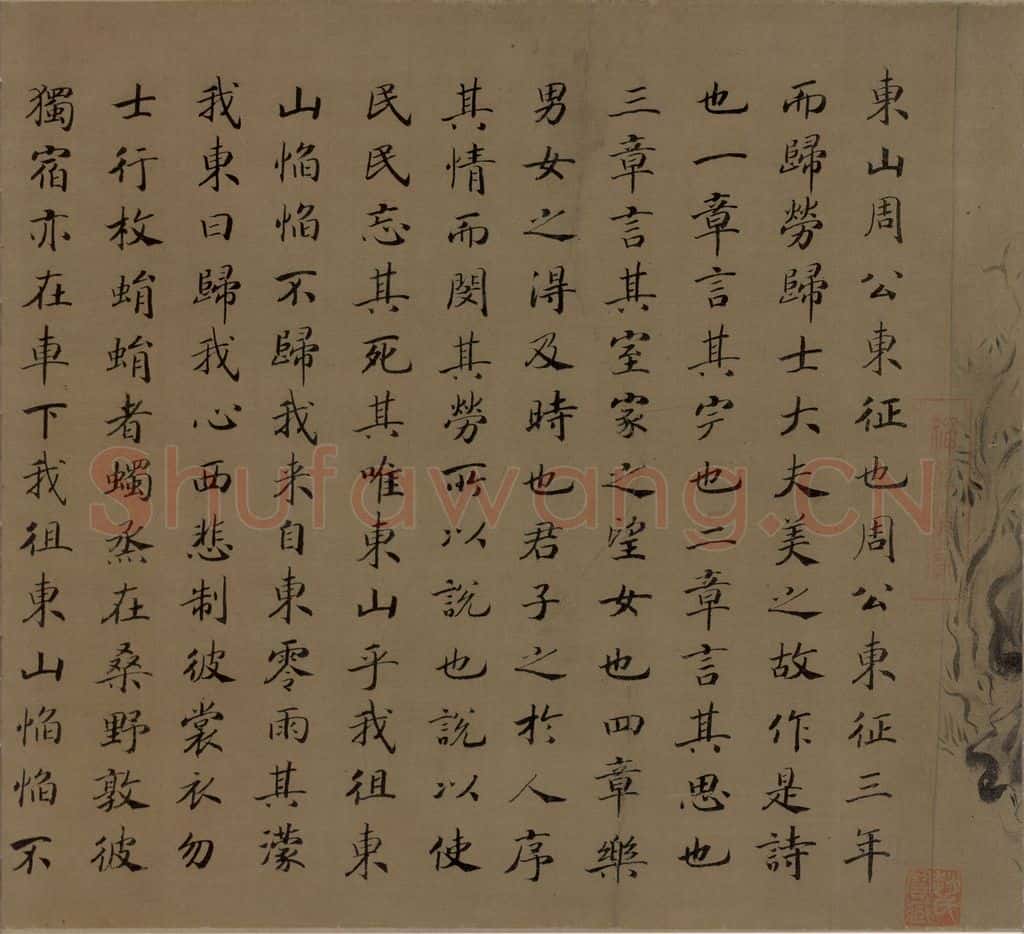 東山周公東征也周公東征三年
而歸勞歸士大夫美之故作是詩
也一章言其完也二章言其思也
三章言其室家之望女也四章樂
男女之得及時也君子之於人序
其情而閔其勞所以說也說以使
民民忘其死其唯東山乎我徂東
山慆慆不歸我来自東零雨其濛
我東曰歸我心西悲制彼裳衣勿
士行枚蜎蜎者蠋烝在桑野敦彼
獨宿亦在車下我徂東山慆慆不
Shufawang.CN